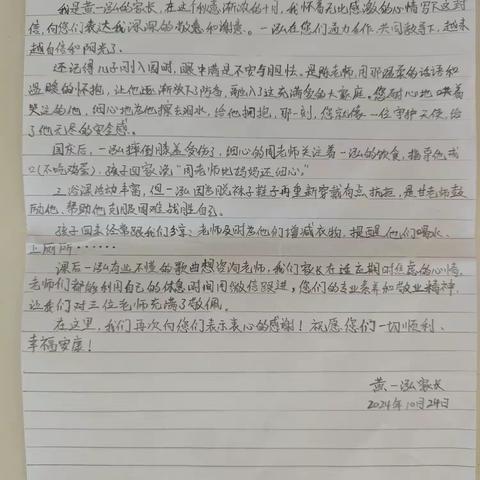 我是黄一泓的家长,在这个秋意渐浓的十月,我怀着无比感激的心情写下这封
信,向你们表达我深深的敬意和谢意。一泓在您们通力合作,共同教导下,越来
越自信和阳光了。
还记得儿子刚入园时,眼中满是不安与胆怯。是陈老师,用那温柔的话语和
温暖的怀抱,让他逐渐放下防备,融入了这充满爱的大家庭。您耐心地哄着
哭泣的他,细心地为他擦去泪水,给他拥抱,那一刻,您就像一位守护天使,给
了他无尽的安全感。
国庆后,一泓摔倒膝盖受伤了,细心的周老师关注着一泓的饮食,指导他戒
口(不吃鸡蛋),孩子回家说"周老师比妈妈还细心。"
户外活动丰富,但一泓因为脱袜子鞋子再重新穿戴有点抗拒,是甘老师鼓
励他、帮助他克服困难战胜自己。
孩子回来经常跟我们分享:老师及时为他们增减衣物,提醒他们喝水、
上厕所······
课后一泓有些不懂的歌曲想咨询老师,我们家长在这五期时焦虑的心情,
老师们都能利用自己的休息时间用微信跟进,您们的专业素养和敬业精神,
让我们对三位老师充满了敬佩。
在这里,我们再次向您们表示衷心的感谢!祝愿您们一切顺利、
幸福安康!
黄一泓家长
2024年10月24日